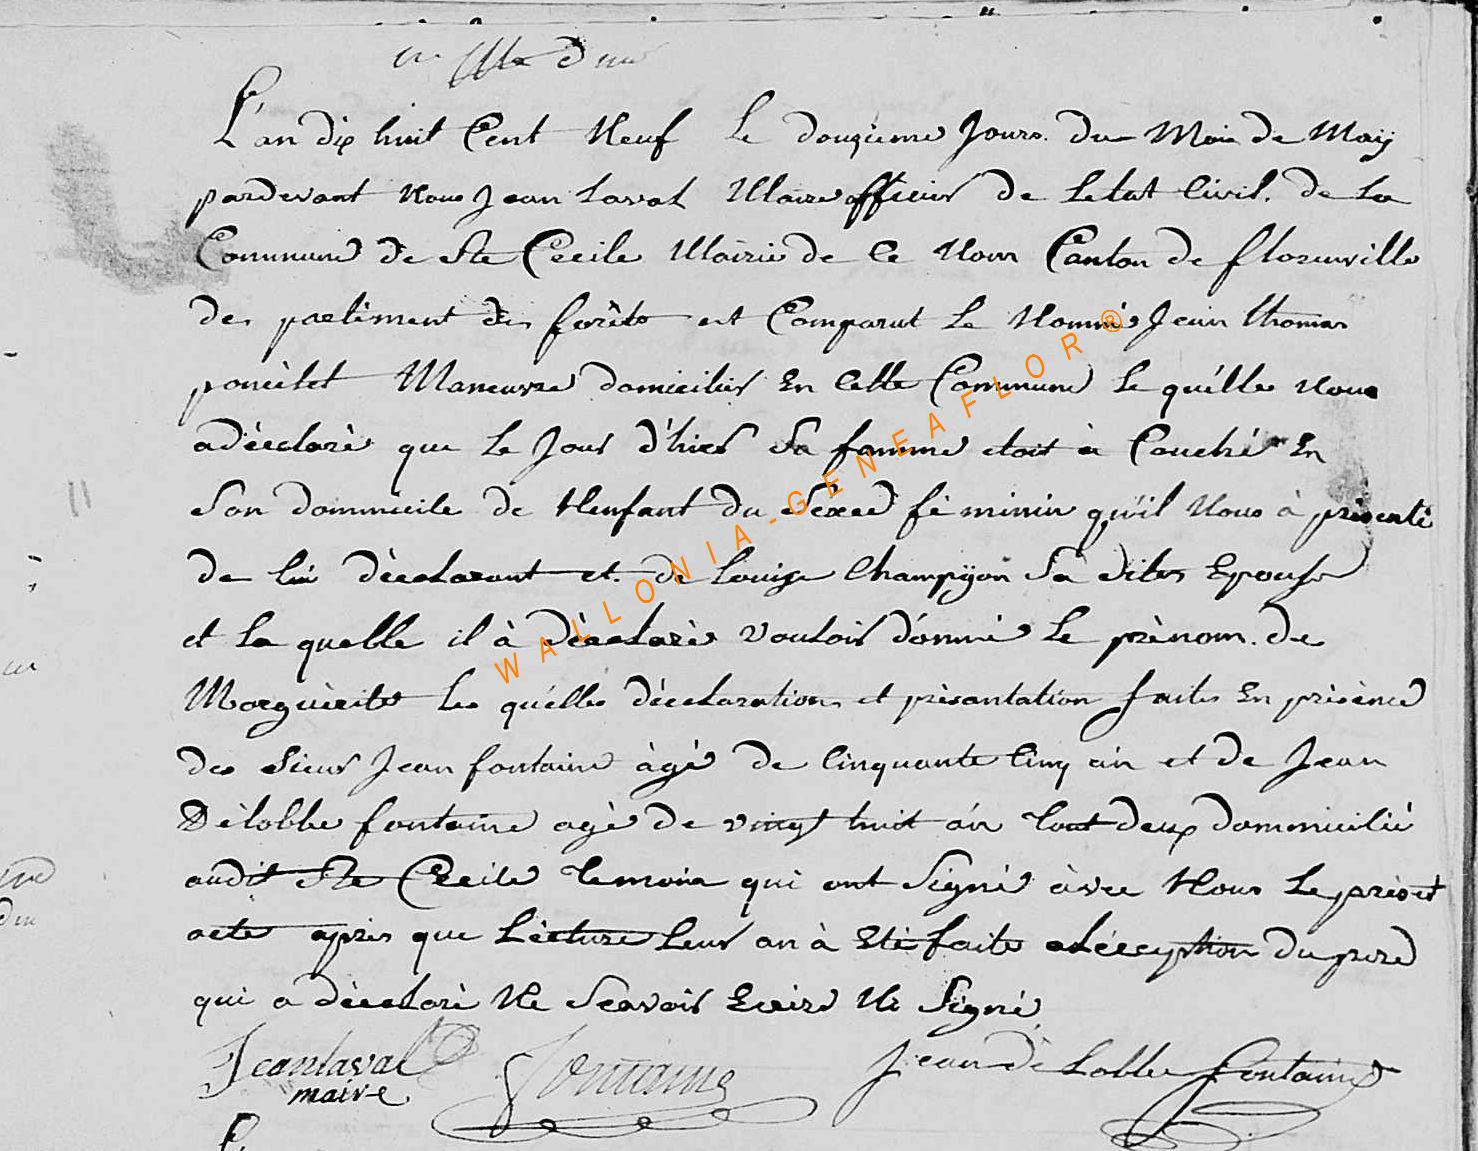 L'an dix huit Cent Neuf Le douzieme Jours du Mois de Maij
pardevant Nous Jean Laval Maire officier de Letat Civil. de La
Commune de Ste Cécile Mairie de Ce Nom Canton de florenville
des partément des forêts est Comparut Le Nommé Jean thomas
poncèlet Maneuvre domicilier En Cette Commune Le quélle Nous
adéclaré que Le Jour d'hier Sa famme etoit à Couché En
Son dommicile de Henfant du Sexe fé minin qu'il Nous à présenté
de lui déclarant et. de Louise Champijon Sa dites Epouse
et La quelle il à déclaré vouloir donné Le prènom. de
Morguèrite Les quélles déclarations et présantation faites En présènce
des Sieur Jean fontaine àgé de Cinquante Cinq an et de Jean
Délobbe fontaine agé de vingt huit an tout deux dommicilié
audit Ste Cécile temoin qui ont Signé àvec Nous Le présent
acte après que Lécture Leur an à Eté faite aLécception du pere
qui a déclaré Ne Scavoir Ecrire Ni Signé
Jean laval fontaine Jean dé Lobbe fontaine
maire
WALLONIA-GENEAFLOR®